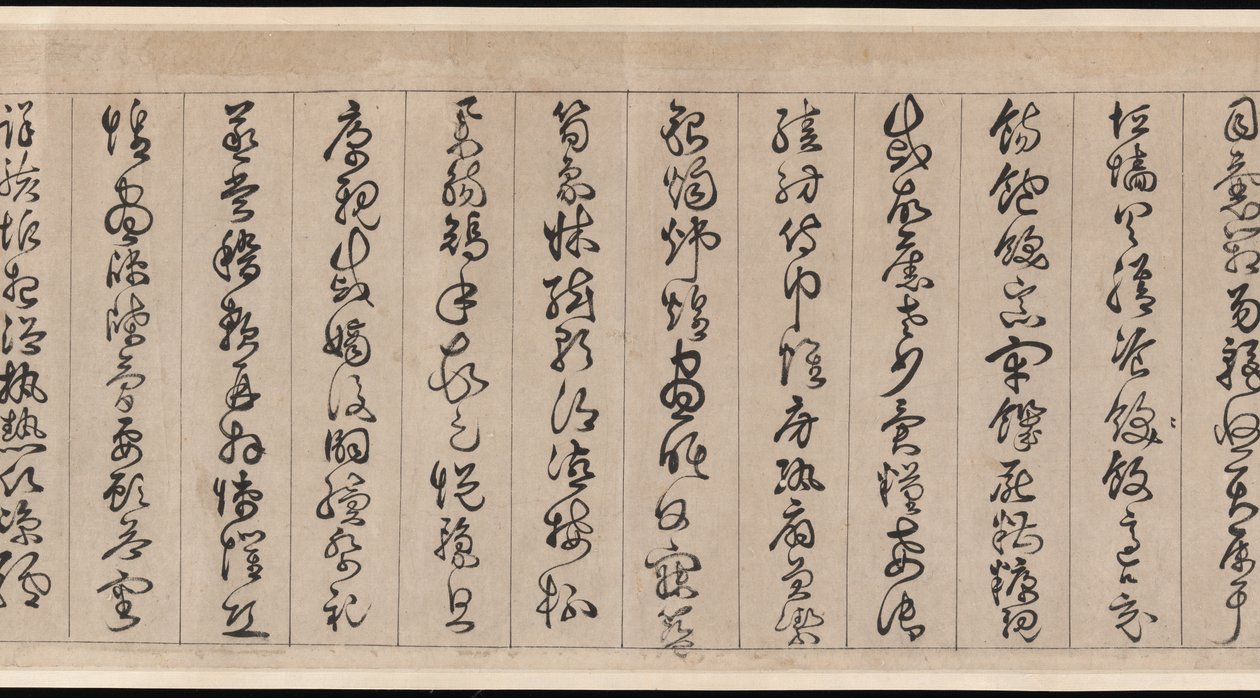 目囊箱易輶攸畏屬耳
垣墻具膳飡飯飯適口充
腸飽飫烹宰飢厭糟糠親
戚故舊老少異糧妾御
績紡侍巾帷房紈扇員潔
銀燭煒煌晝眠夕寐籃
筍象床絃歌酒讌接杯
舉觴矯手頓足悅豫且
康親戚嫡後嗣續祭祀
蒸嘗稽顙再拜悚懼恐
惶牋牒簡要顧答審
詳骸垢想浴執熱願涼驢